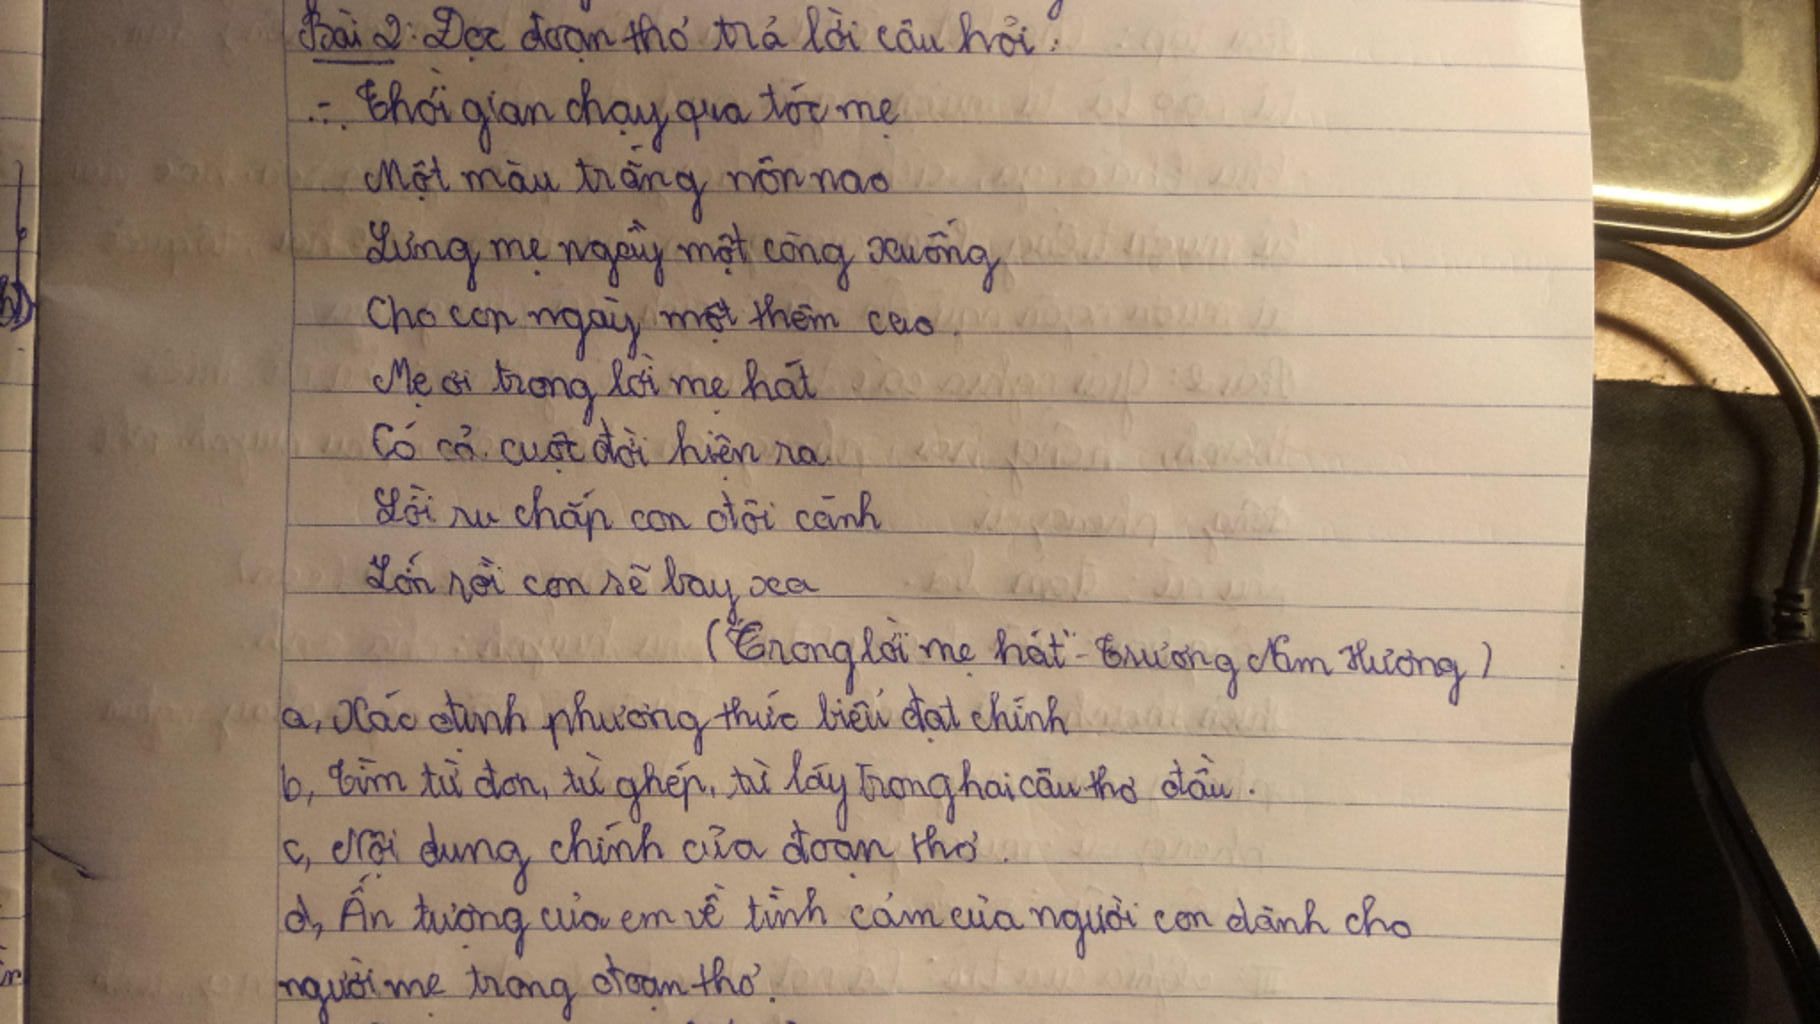 Bài 2: Đọc đoạn thơ trả lời câu hỏi.
Thời gian chạy qua tóc mẹ
Một màu trắng nôn nao
Lưng mẹ ngày một còng xuống
Cho con ngày một thêm cao.
Mẹ ơi trong lời mẹ hát
Có cả cuộc đời hiện ra
Lời ru chắp con đôi cánh
Lớn rồi con sẽ bay xa
("Trong lời mẹ hát" - Trương Nam Hương)
a, Xác định phương thức biểu đạt chính
b, Tìm từ đơn, từ ghép, từ láy trong hai câu thơ đầu.
c, Nội dung chính của đoạn thơ.
d, Ấn tượng của em về tình cảm của người con dành cho
người mẹ trong đoạn thơ.